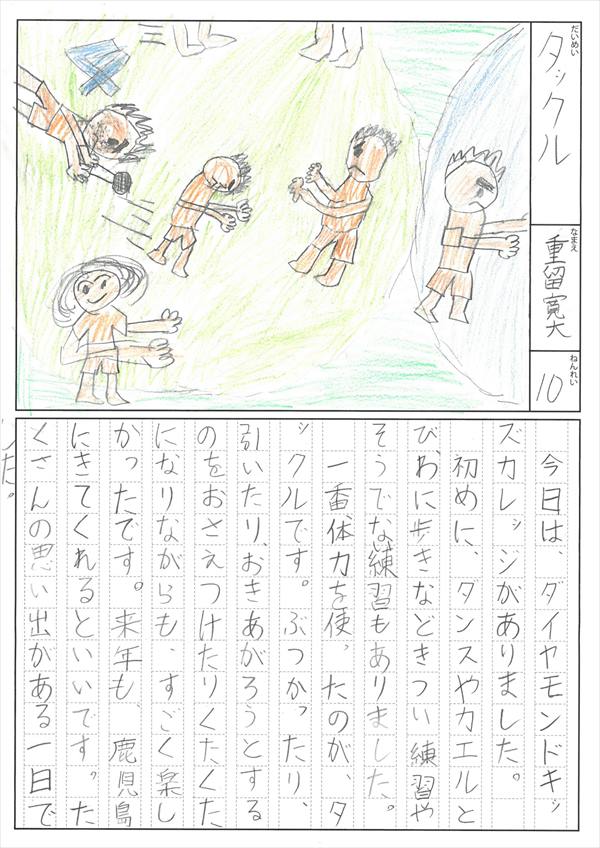 だいめい
タックル
なまえ
重留寛大
ねんれい
10
今日は、ダイヤモンドキッ
ズカレッジがありました。
初めに、ダンスやカエルと
びわに歩きなどきつい練習や
そうでない練習もありました。
一番体力を使ったのが、タ
ックルです。ぶつかったり、
引いたり、おきあがろうとする
のをおさえつけたりくたくた
になりながらも、すごく楽し
かったです。来年も、鹿児島
にきてくれるといいです。た
くさんの思い出がある一日で
した。